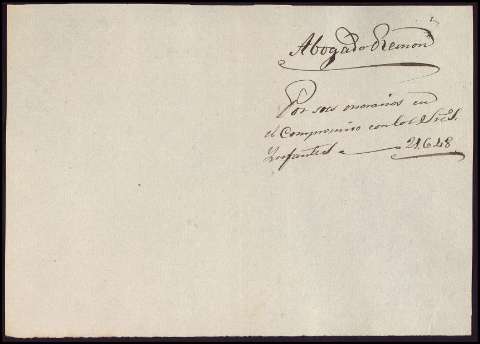 Abogado Remon
Por sus onorarios en
el Compromiso con los Sres.
Infantes 2,648